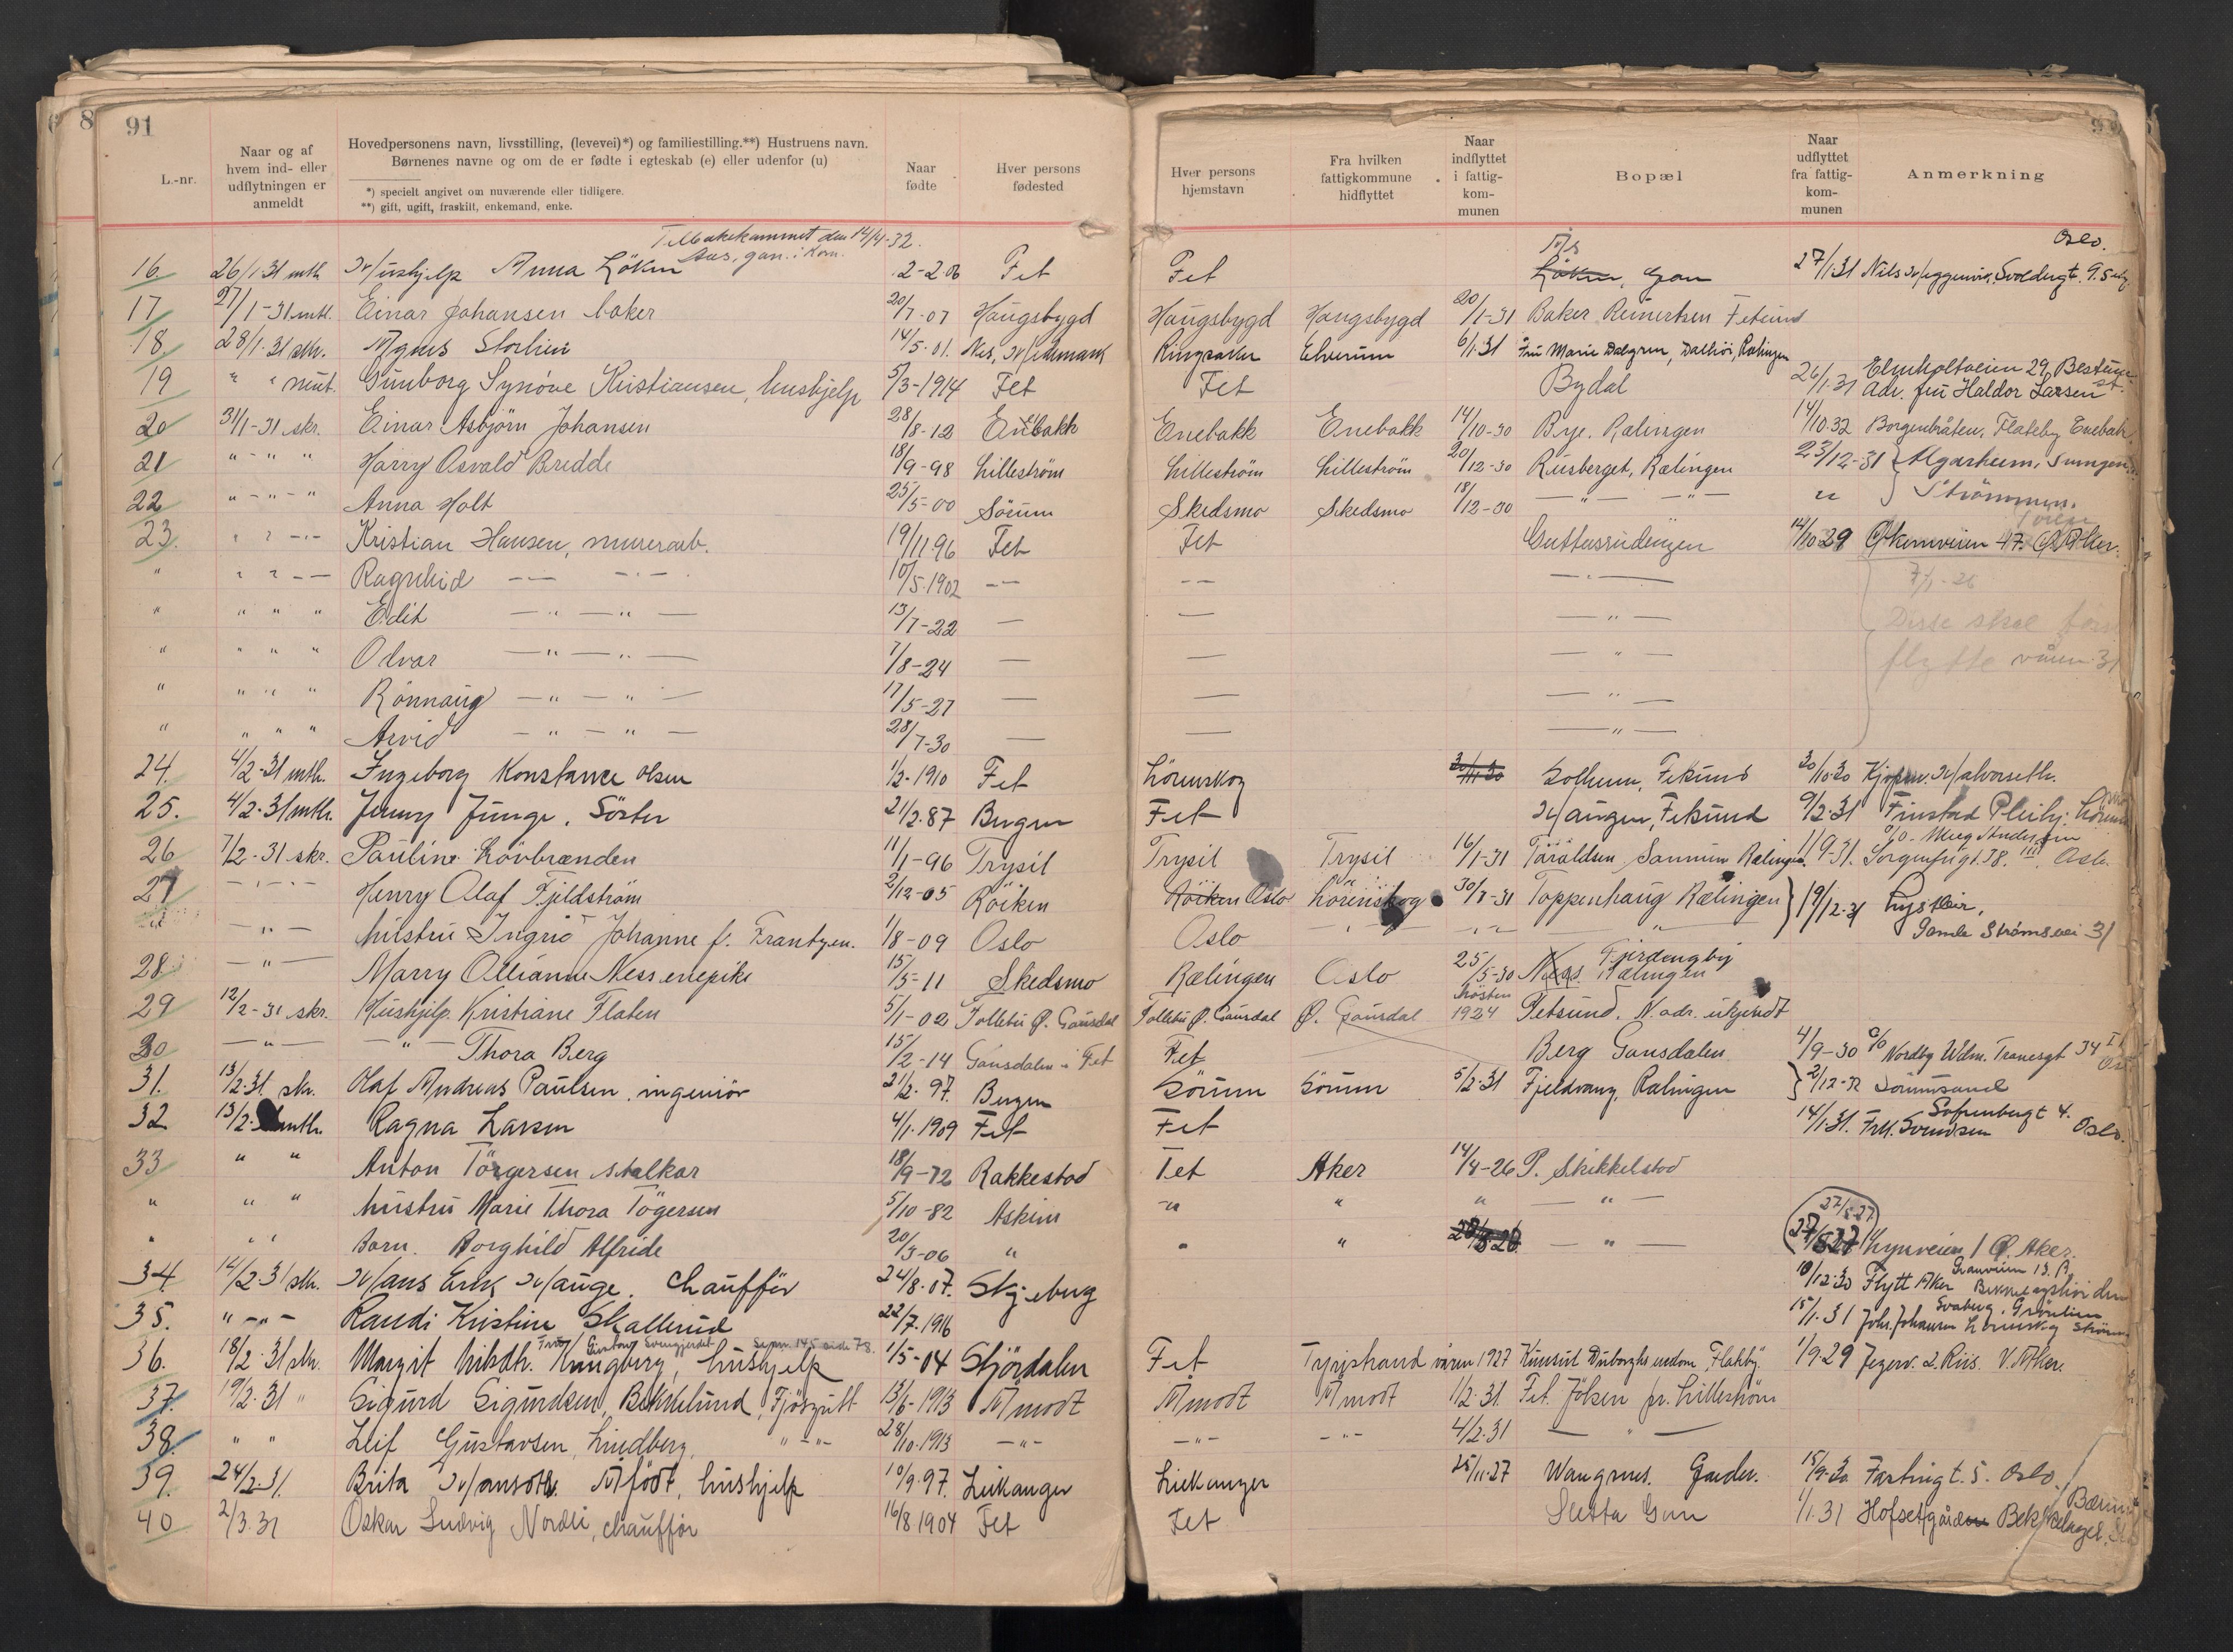 91
L.-nr.
Naar og af hvem ind- eller udflytningen er anmeldt
Hovedpersonens navn, livsstilling, (levevei)*) og familiestilling.**) Hustruens navn.
Børnenes navne og om de er fødte i egteskab (e) eller udenfor (u)
*) specielt angivet om nuværende eller tidligere.
**) gift, ugift, fraskilt, enkemand, enke.
Naar fødte
Hver persons fødested
Hver persons hjemstavn
Fra hvilken fattigkommune hidflyttet
Naar indflyttet i fattigkommunen
Bopæl
Naar udflyttet fra fattigkommunen
Anmerkning
Tilbakekommet den 14/4-32.
16 26/1-31 mth Hushjelp Anna Löken 2-2-06 Fet Fet Löken, Gan 27/1-31 Oslo.
17 27/1-31 mtl. Einar Johansen baker 20/7-07 Haugsbygd Haugsbygd Haugsbygd 20/1-31 Baker Reinertsen Fetsund
18. 28/1-31 skr. Agnes Storlien 14/5-01. Nes, Hedmark Ringsaker Elverum 6/1-31 Fru Marie Dalgren, Dalheim, Rælingen
19 " " munt. Gunborg Synöve Kristiansen, hushjelp 5/3-1914 Fet Fet Bydal 26/1-31 Elmholtveien 29, Bestum st. Adr. fru Haldor Larsen
20 31/1-31 skr. Einar Asbjörn Johansen 28/8-12 Enebakk Enebakk Enebakk 14/10-30 Bye. Rælingen 14/10.32 Borgenbråten, Flateby Enebakk
21 " - " " Harry Osvald Bredde 18/9-98 Lilleström Lilleström Lilleström 20/12-30 Riisberget, Rælingen 23/12-31 Algarheim,
22 " - " - " Anna Holt 25/5-00 Sörum Skedsmo Skedsmo 18/12-30 — " — — " — " Strömmen.
23. " " - " - Kristian Hansen, murerarb. 19/11 96 Fet Fet Guttersrudengen 14/10 29 Økernveien 47. Ø. Aker.
" " " - - Ragnhild — " — 10/5-1902 — — — " — 7/1-26
" " " " Edit — " — " — 13/7-22 — — — " — Disse skal först
" " " " Odvar — " — " — 7/8-24 — — — " — flytte våren 31
" " " " Rönnaug — " — " — 17/5-27 — — — " —
" " " " Arvid — " — " — 28/7-30 — — — " —
24. 4/2-31 mth. Ingeborg Konstance Olsen 1/2-1910 Fet Lörenskog 30/11 30 Solheim, Fetsund 30/10-30 Kjøpm. Halvorseth.
25. 4/2-31 mth. Jenny Junge. Söster 21/2-87 Bergen Fet Haugen, Fetsund 9/2-31 Finstad Pleihj.
26 7/2-31 skr. Pauline Kövbrænden 11/1-96 Trysil Trysil Trysil 16/1-31 Taraldsen Sannum Rælingen 1/9-31. Sorgenfrigt. 38. III Oslo
27 — " — Henry Olaf Fjeldström 2/12-05 Röiken Röiken Oslo Lörenskog 30/1-31 Toppenhaug Rælingen 19/12-31
— " — hustru Ingrid Johanne f. Frantzen. 1/8-09 Oslo Oslo — " — — " — " Gamle Strömsvei 31
28 — " — Marry Ollianne Ness enepike 15/5-11 Skedsmo Rælingen Oslo 25/5-30 Ness Rælingen
29 12/2-31 skr. Hushjelp. Kristiane Flaten 5/1-02 Follebu Ø. Gausdal Follebu Ø. Gausdal Ø. Gausdal hösten 1924 Fetsund. N. adr. ukjendt
30 — " — — " — Thora Berg 15/2-14 Gansdalen i Fet Fet Berg Gansdalen 4/9-30 c/o Nordby Wdm. Tranesgt 34 II Oslo
31. 13/2-31. skr. Olaf Andreas Paulsen. ingeniör 21/2-97. Bergen Sörum Sörum 5/2-31 Fjeldvang, Rælingen 2/12-32 Sörumsand
32 13/2-31 mth. Ragna Larsen 4/1-1909 Fet Fet 14/1-31. Frk. Svendsen Sofienbergt 4. Oslo.
33 " " Anton Törgersen stalkar 18/9-72 Rakkestad Fet Aker 14/4-26 P. Skikkelstad
" " " hustru Marie Thora Tögersen 5/10-82 Askim " " " — " —
" " " Barn. Borghild Alfride 20/3-06 " " " 20/8 26 — " — 27/5-27 Ø. Aker.
34. 14/2-31 skr. Hans Erik Hauge. Chauffør 24/8-07. Skjeberg 10/12-30 Flytt Aker
35. " - " - Randi Kristine Skallerud 22/7.1916 15/1-31 Joh. Johansen
36. 18/2-31 skr. Margit Nilsdtr. Haugberg, hushjelp Se pr. 145 side 78. 1/5-04 Stjördalen Fet Tyristrand våren 1927 1/9-29 V. Aker.
37. 19/2-31 " Sigurd Sigurdsen, Bekkelund, Fjösgutt 13/6-1913 Åmodt Åmodt Åmodt 1/2-31. Fet. Jölsen pr. Lilleström
38. " " Leif Gustavsen, Lindberg, " - " - 28/10-1913 — " — — " — — " — 4/2-31 — " —
39. 24/2-31. Brita Hansdtr. Åfödt, hushjelp 10/9-97. Leikanger Leikanger 25/11-27 Wangsnes. Garder. 15/9-30. Fastingt. 5. Oslo.
40 2/3-31 Oskar Ludvig Nordli, chaufför 16/8 1904 Fet Fet Sletta Gan 1/1.31 Hofsetgården Bekkelaget.